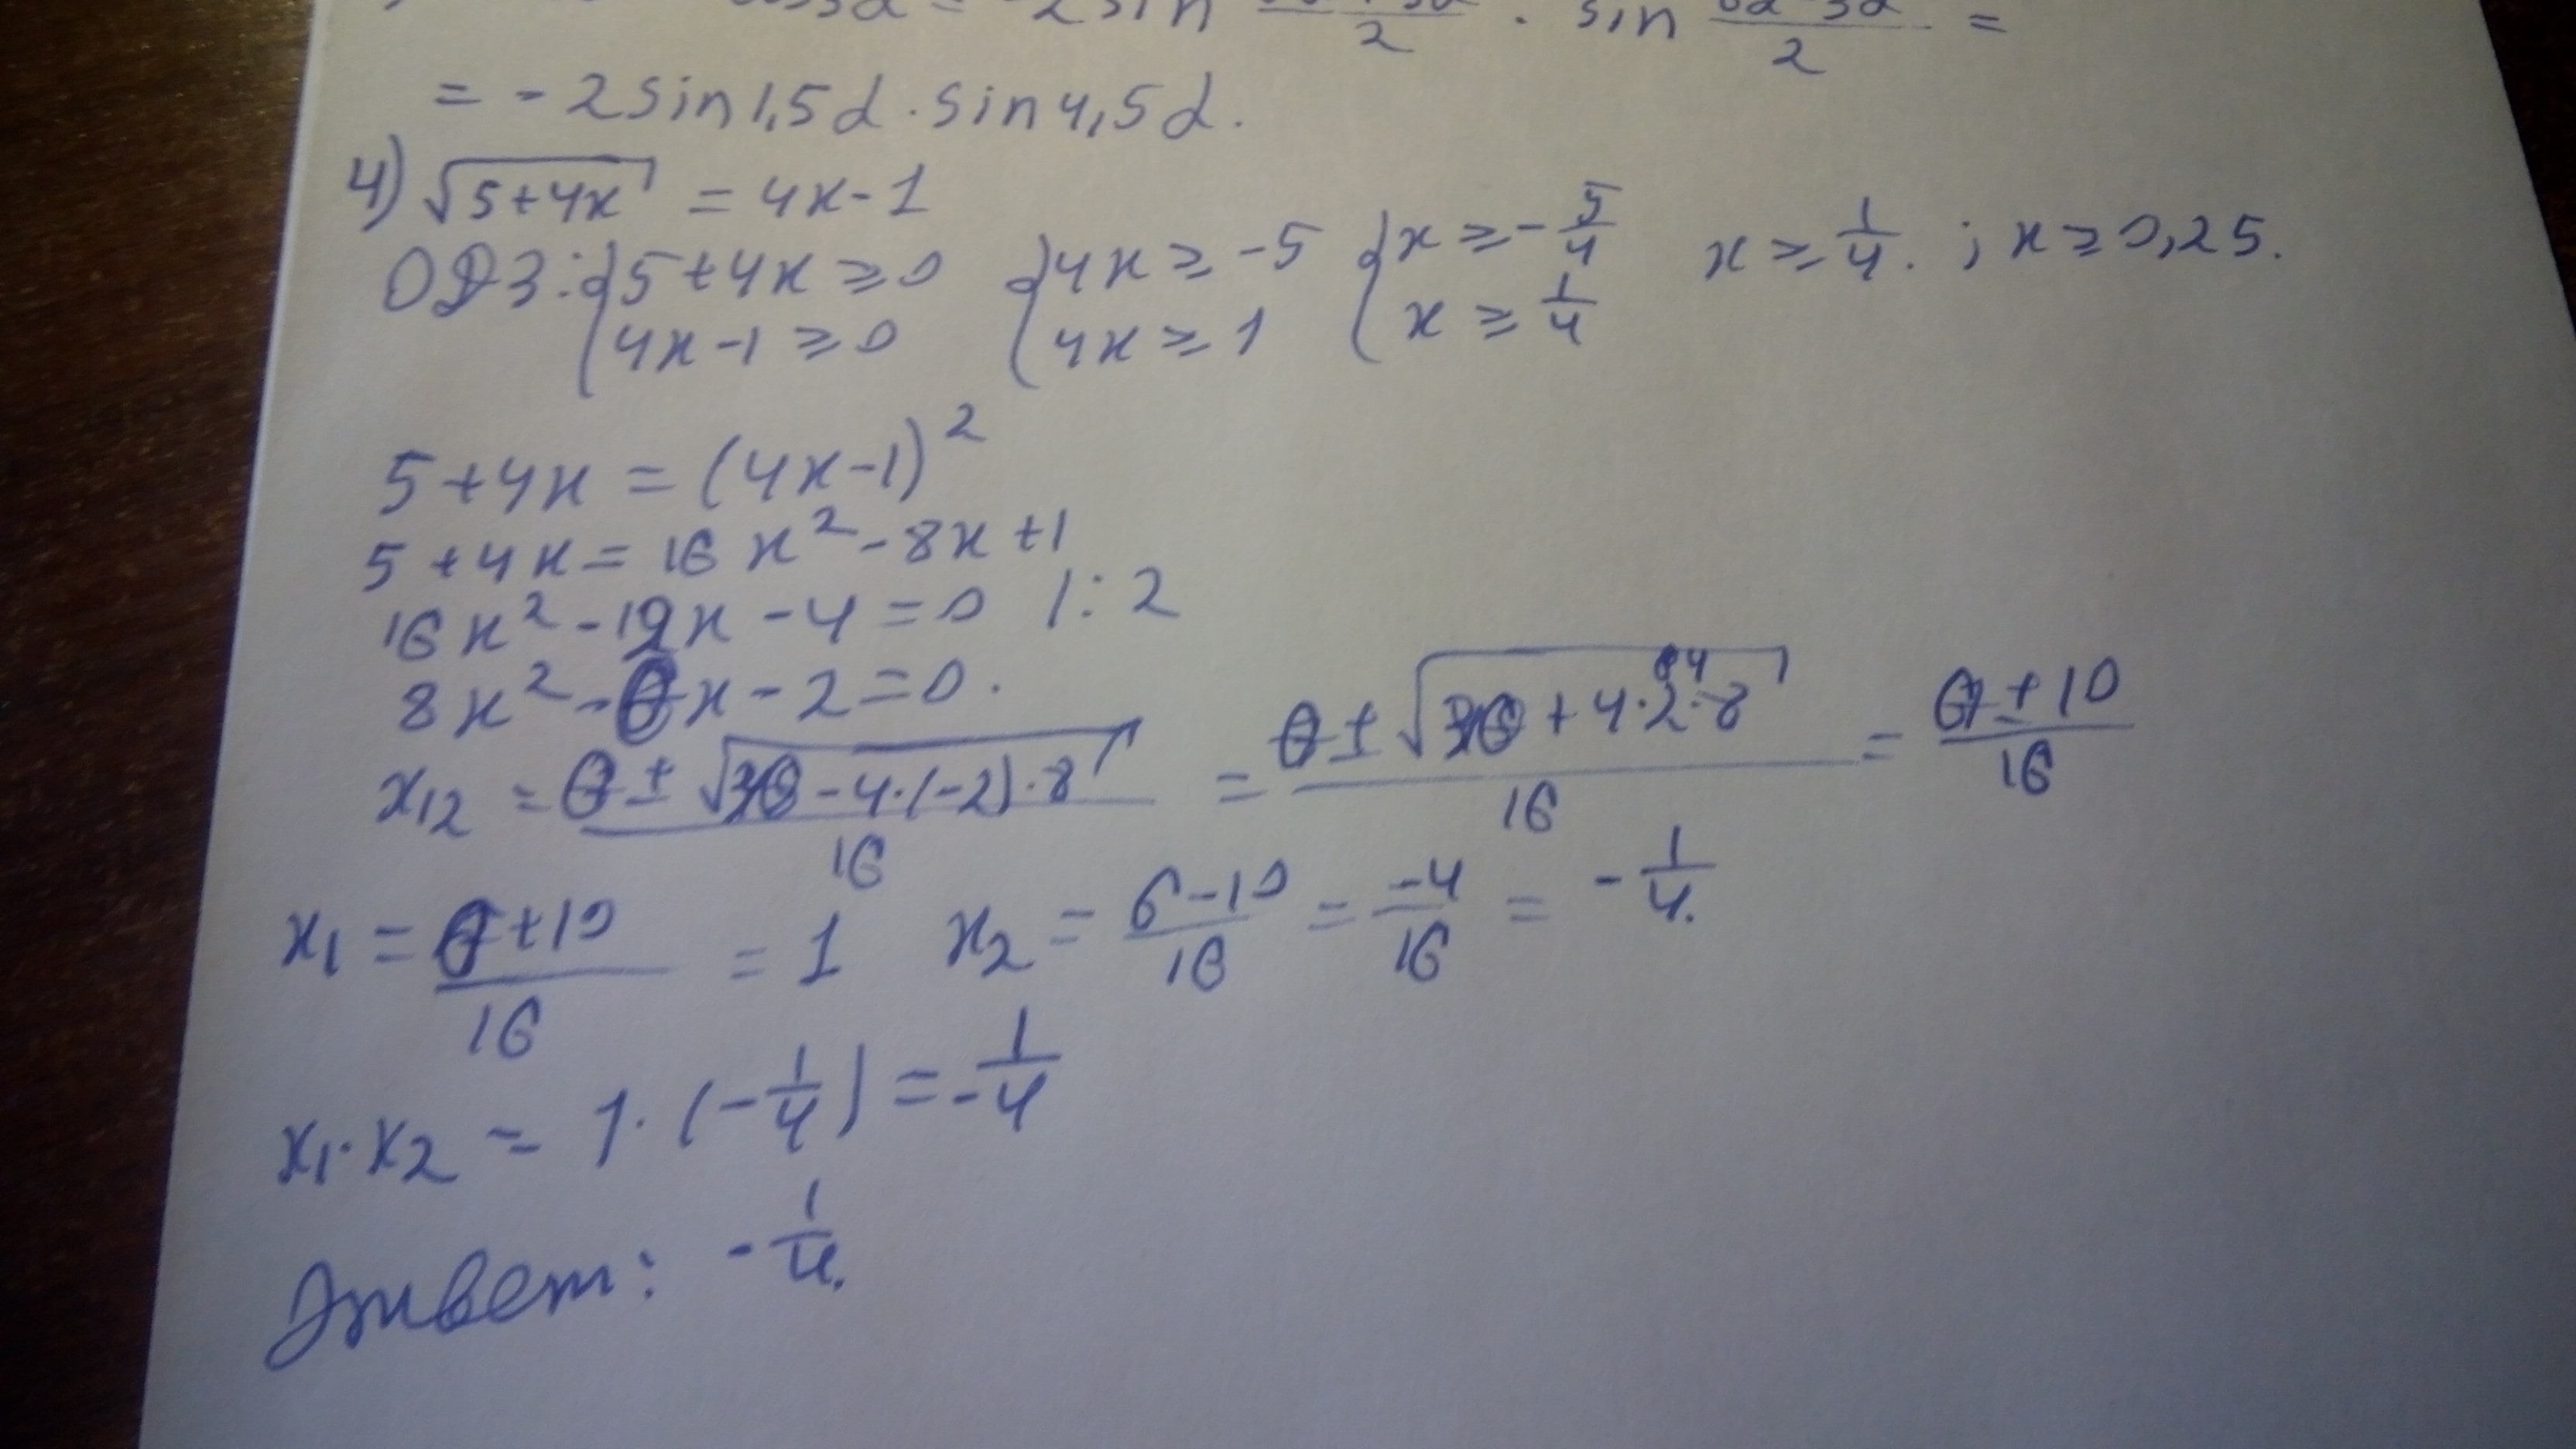 cos3α = -2 sin /2 · sin 6α 3α/2 =
= -2sin1,5α · sin4,5α.
4) √(5+4x) = 4x-1
ОДЗ: {5+4x ≥ 0 {4x ≥ -5 {x ≥ -5/4 x ≥ 1/4. ; x ≥ 0,25.
{4x-1 ≥ 0 {4x ≥ 1 {x ≥ 1/4
5+4x = (4x-1)²
5+4x = 16x²-8x+1
16x²-12x-4=0 |:2
8x²-6x-2=0.
x₁₂ = (6±√(36-4·(-2)·8))/16 = (6±√(36+4·2·8))/16 = (6±10)/16
64
x₁ = (6+10)/16 = 1 x₂ = (6-10)/16 = -4/16 = -1/4.
x₁·x₂ = 1·(-1/4) = -1/4
Ответ: -1/4.